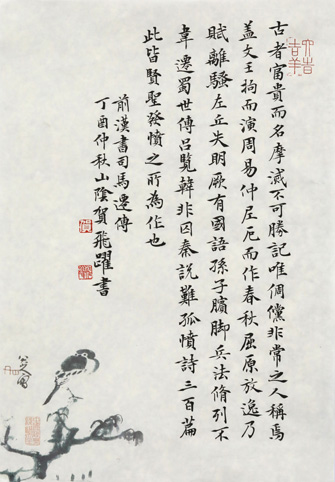 古者富貴而名摩滅不可勝記唯倜儻非常之人稱焉
蓋文王拘而演周易仲尼厄而作春秋屈原放逸乃
賦離騷左丘失明厥有國語孫子臏脚兵法脩列不
韋遷蜀世傳呂覽韓非囚秦說難孤憤詩三百篇
此皆賢聖發憤之所為作也
前漢書司馬遷傳
丁酉仲秋山陰賀飛躍書